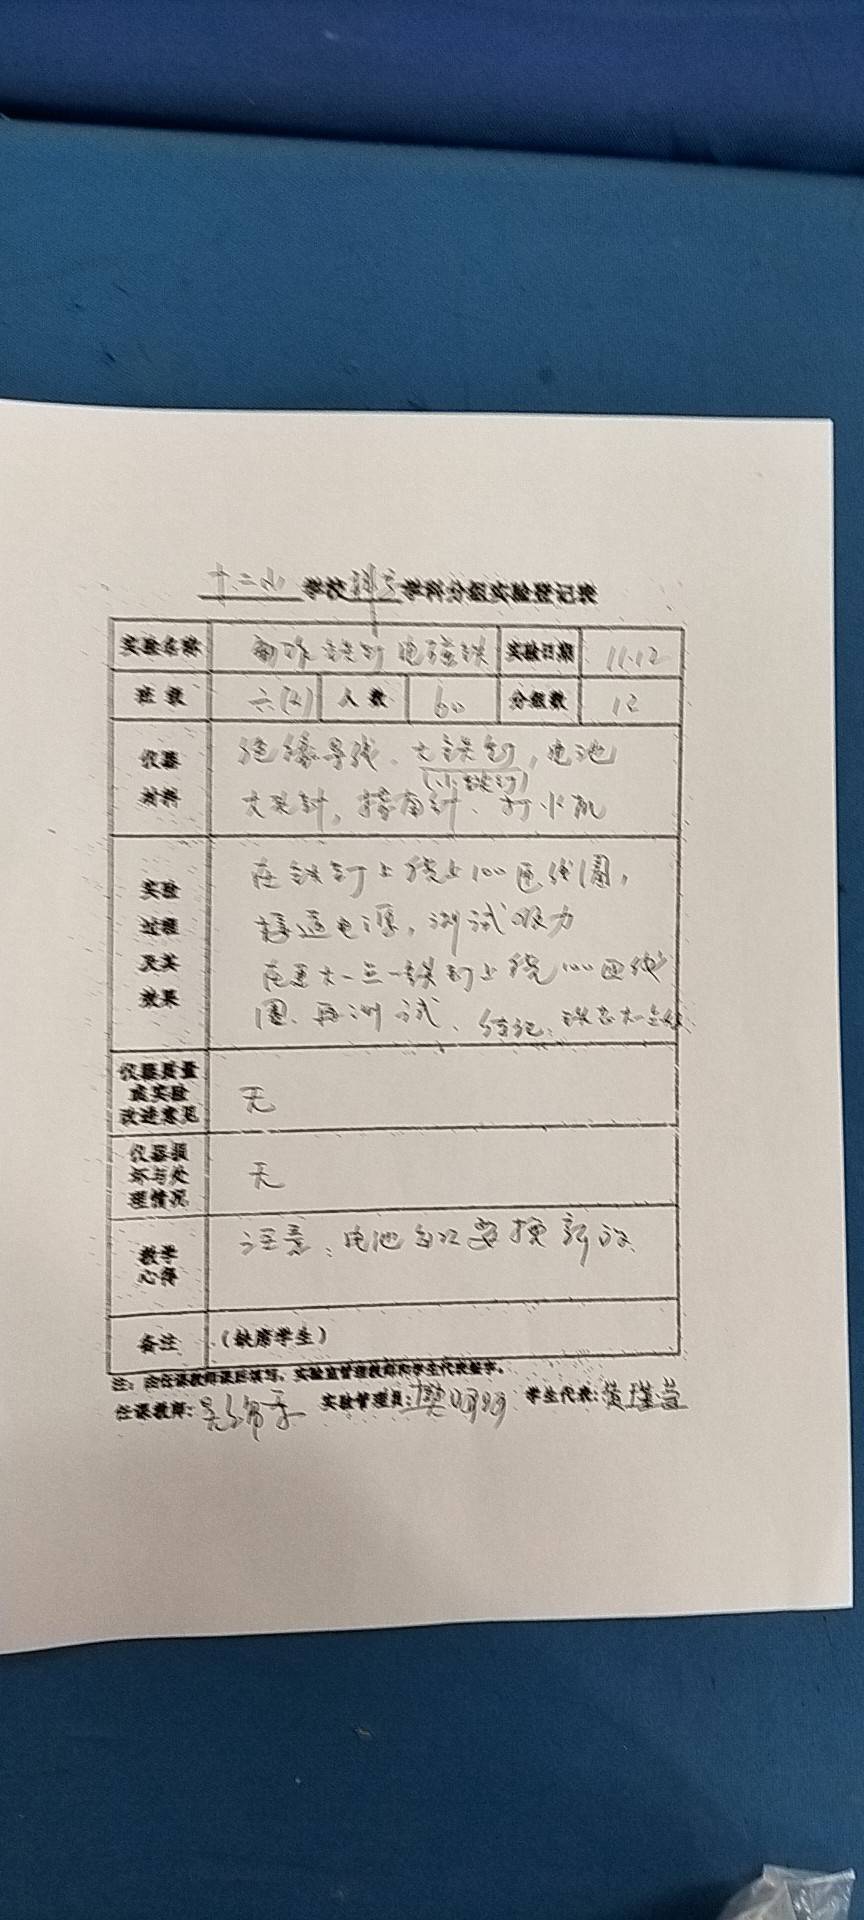 十二小学校科学学科分组实验登记表
实验名称 制作铁钉电磁铁 实验日期 11.12
班级 六(2) 人数 60 分组数 12
仪器材料 绝缘导线、大铁钉,电池
(小铁钉)
大头针,指南针、打火机
实验过程及其效果 在铁钉上绕上100匝线圈,
接通电源,测试吸力
在更大一点铁钉上绕100匝线
圈、再测试、结论:铁芯大
仪器质量或实验改进意见 无
仪器损坏与处理情况 无
教学心得 注意:电池 要换新的
备注 (缺席学生)
注:由任课教师课后填写,实验室管理教师和学生代表签字。
任课教师: 实验管理员:樊明明 学生代表:黄瑾萱